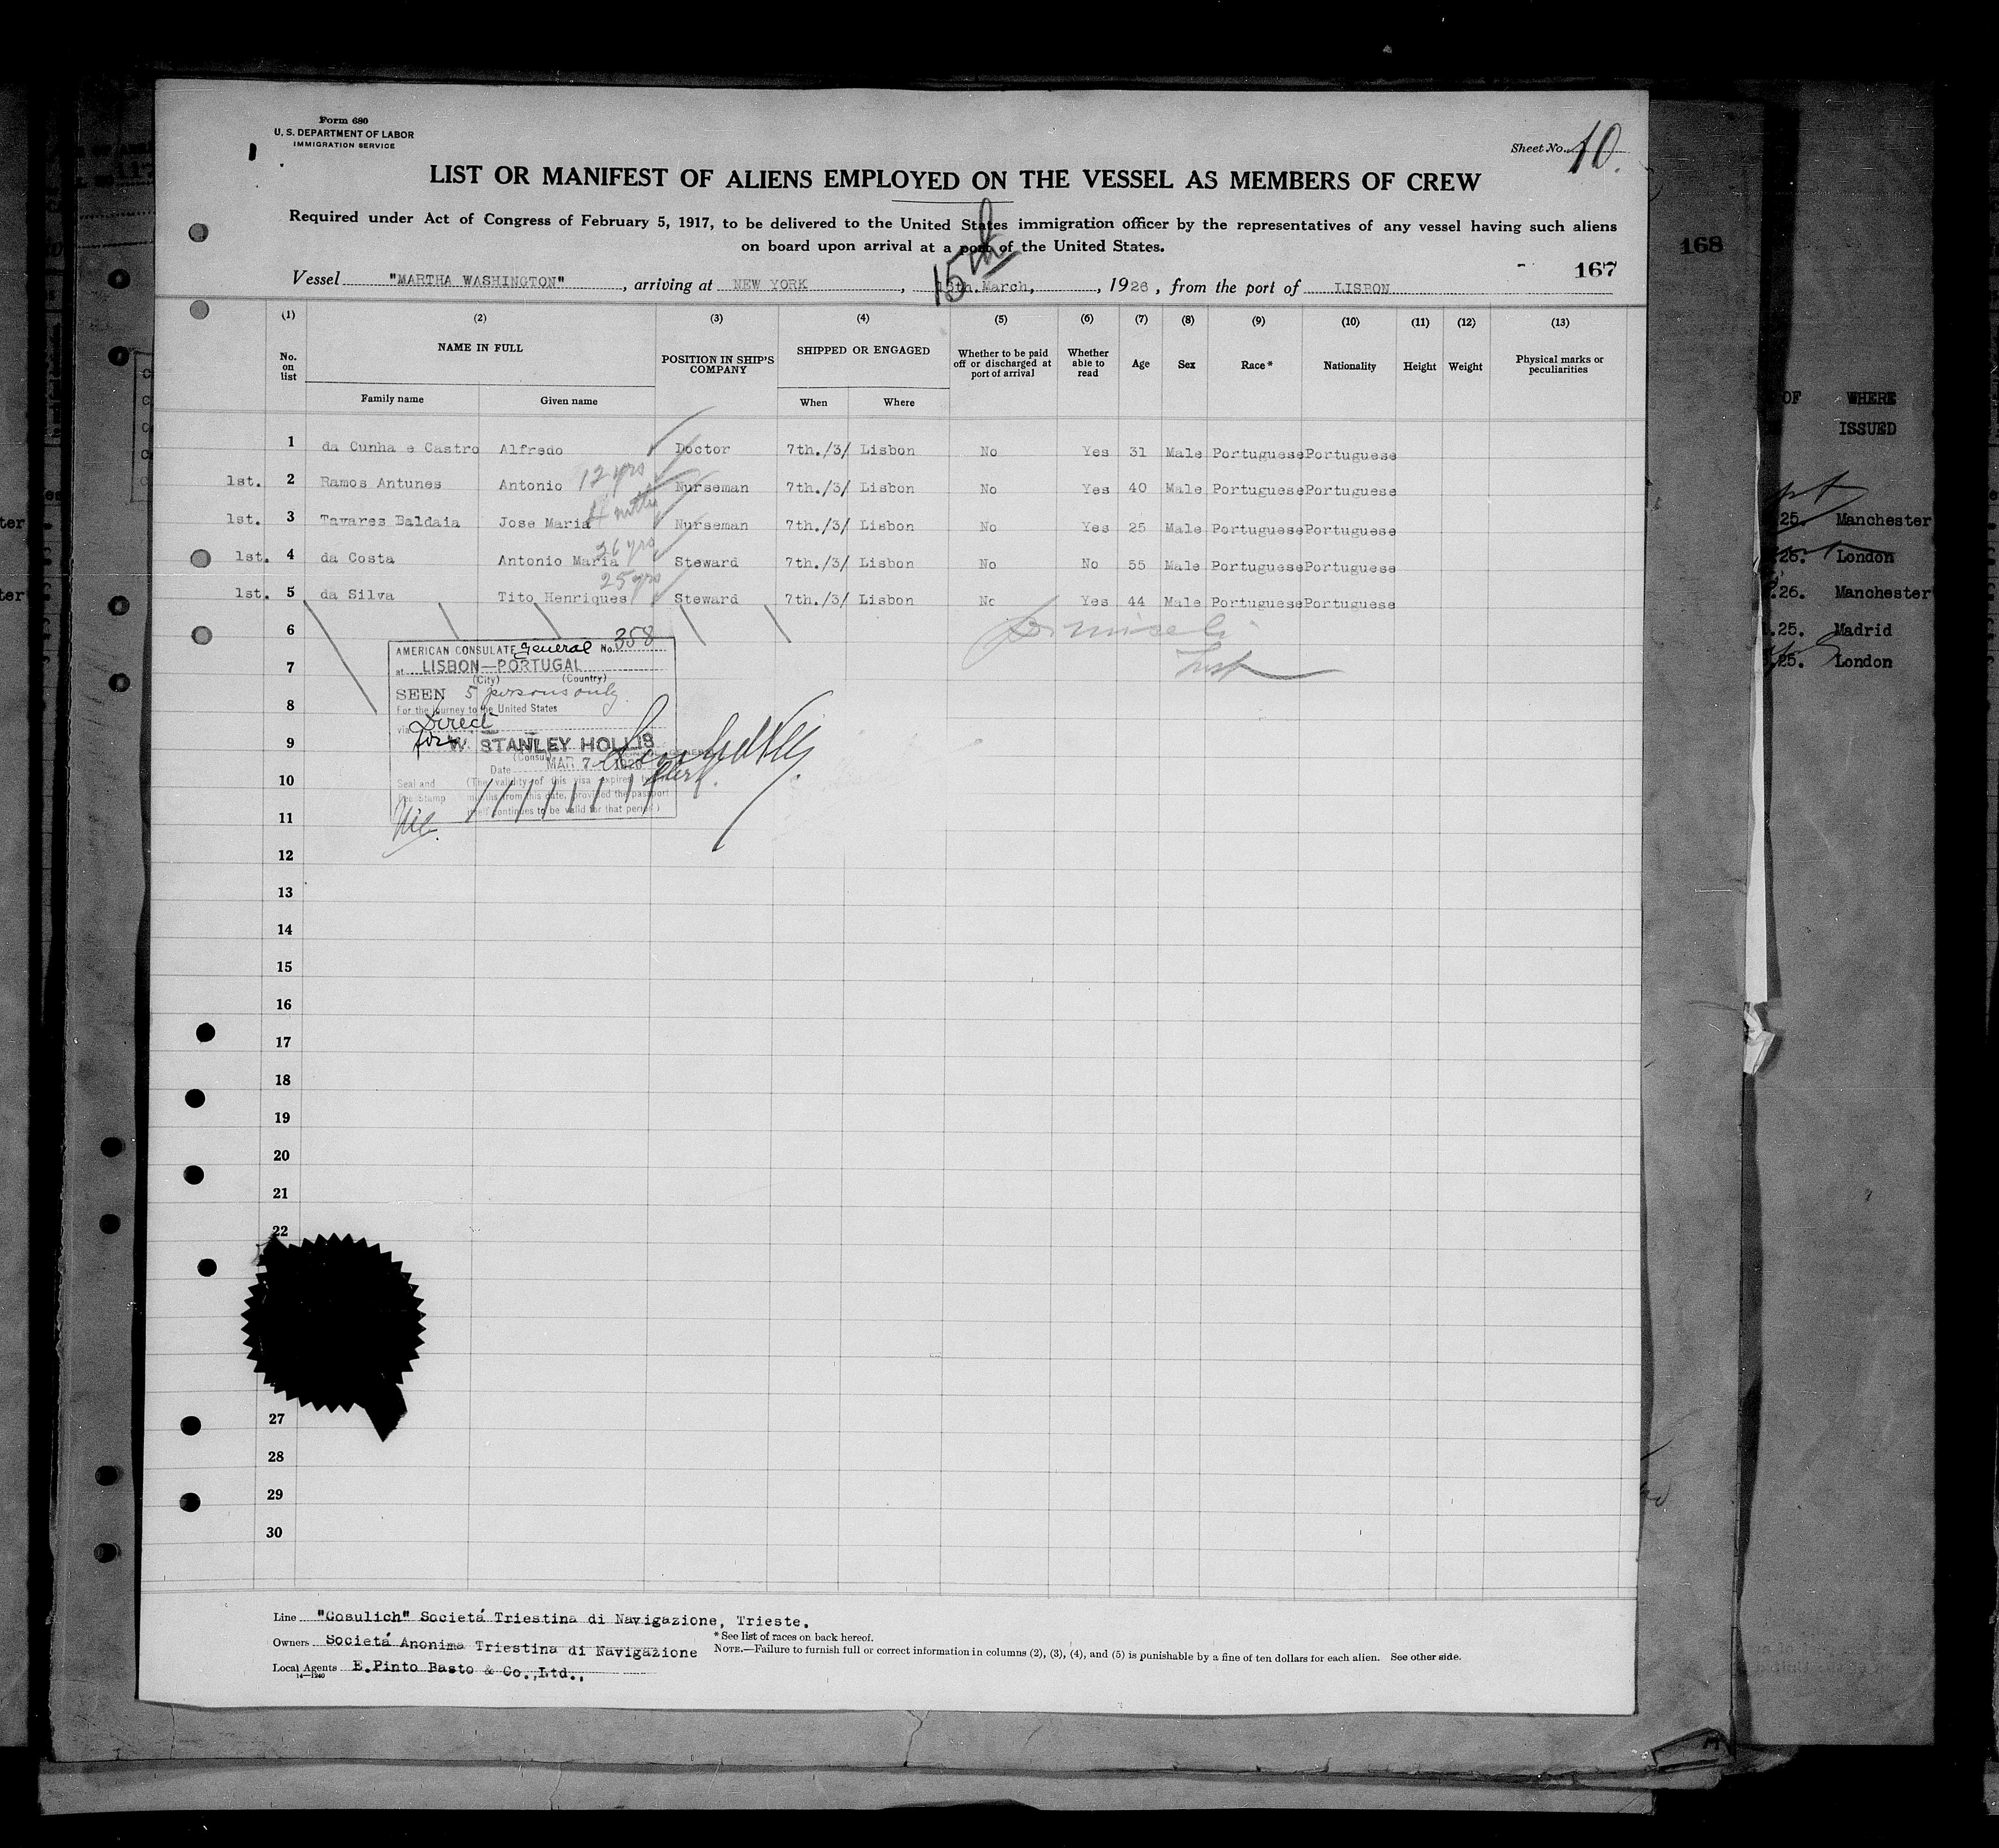 Form 680
U. S. DEPARTMENT OF LABOR
IMMIGRATION SERVICE
Sheet No. 10.
LIST OR MANIFEST OF ALIENS EMPLOYED ON THE VESSEL AS MEMBERS OF CREW
Required under Act of Congress of February 5, 1917, to be delivered to the United States immigration officer by the representatives of any vessel having such aliens
on board upon arrival at a port of the United States.
168
167
15th
Vessel "MARTHA WASHINGTON", arriving at NEW YORK, 15th. March, 1926, from the port of LISBON
(1) (2) (3) (4) (5) (6) (7) (8) (9) (10) (11) (12) (13)
No. on list NAME IN FULL POSITION IN SHIP'S COMPANY SHIPPED OR ENGAGED Whether to be paid off or discharged at port of arrival Whether able to read Age Sex Race* Nationality Height Weight Physical marks or peculiarities
Family name Given name When Where
1 da Cunha e Castro Alfredo Doctor 7th./3/ Lisbon No Yes 31 Male Portuguese Portuguese
1st. 2 Ramos Antunes Antonio 12 yrs Nurseman 7th./3/ Lisbon No Yes 40 Male Portuguese Portuguese
1st. 3 Tavares Baldaia Jose Maria 4 Nurseman 7th./3/ Lisbon No Yes 25 Male Portuguese Portuguese
1st. 4 da Costa Antonio Maria 26 yrs Steward 7th./3/ Lisbon No No 55 Male Portuguese Portuguese
1st. 5 da Silva Tito Henriques 25 yrs Steward 7th./3/ Lisbon No Yes 44 Male Portuguese Portuguese
6
7
8
9
10
11
12
13
14
15
16
17
18
19
20
21
22
27
28
29
30
AMERICAN CONSULATE General No. 358
at LISBON—PORTUGAL
(City) (Country)
SEEN 5 persons only
For the journey to the United States
via Direct
for W. STANLEY HOLLIS
(Consul
Date MAR 7 1926
Seal and (The validity of this visa expires
Fee Stamp months from this date, provided the passport
itself continues to be valid for that period)
Insp
OF WHERE
ISSUED
25. Manchester
26. London
.26. Manchester
.25. Madrid
.25. London
Line "Cosulich" Societá Triestina di Navigazione, Trieste.
Owners Societá Anonima Triestina di Navigazione
Local Agents E.Pinto Basto & Co.,Ltd.,
14—1240
* See list of races on back hereof.
NOTE.—Failure to furnish full or correct information in columns (2), (3), (4), and (5) is punishable by a fine of ten dollars for each alien. See other side.